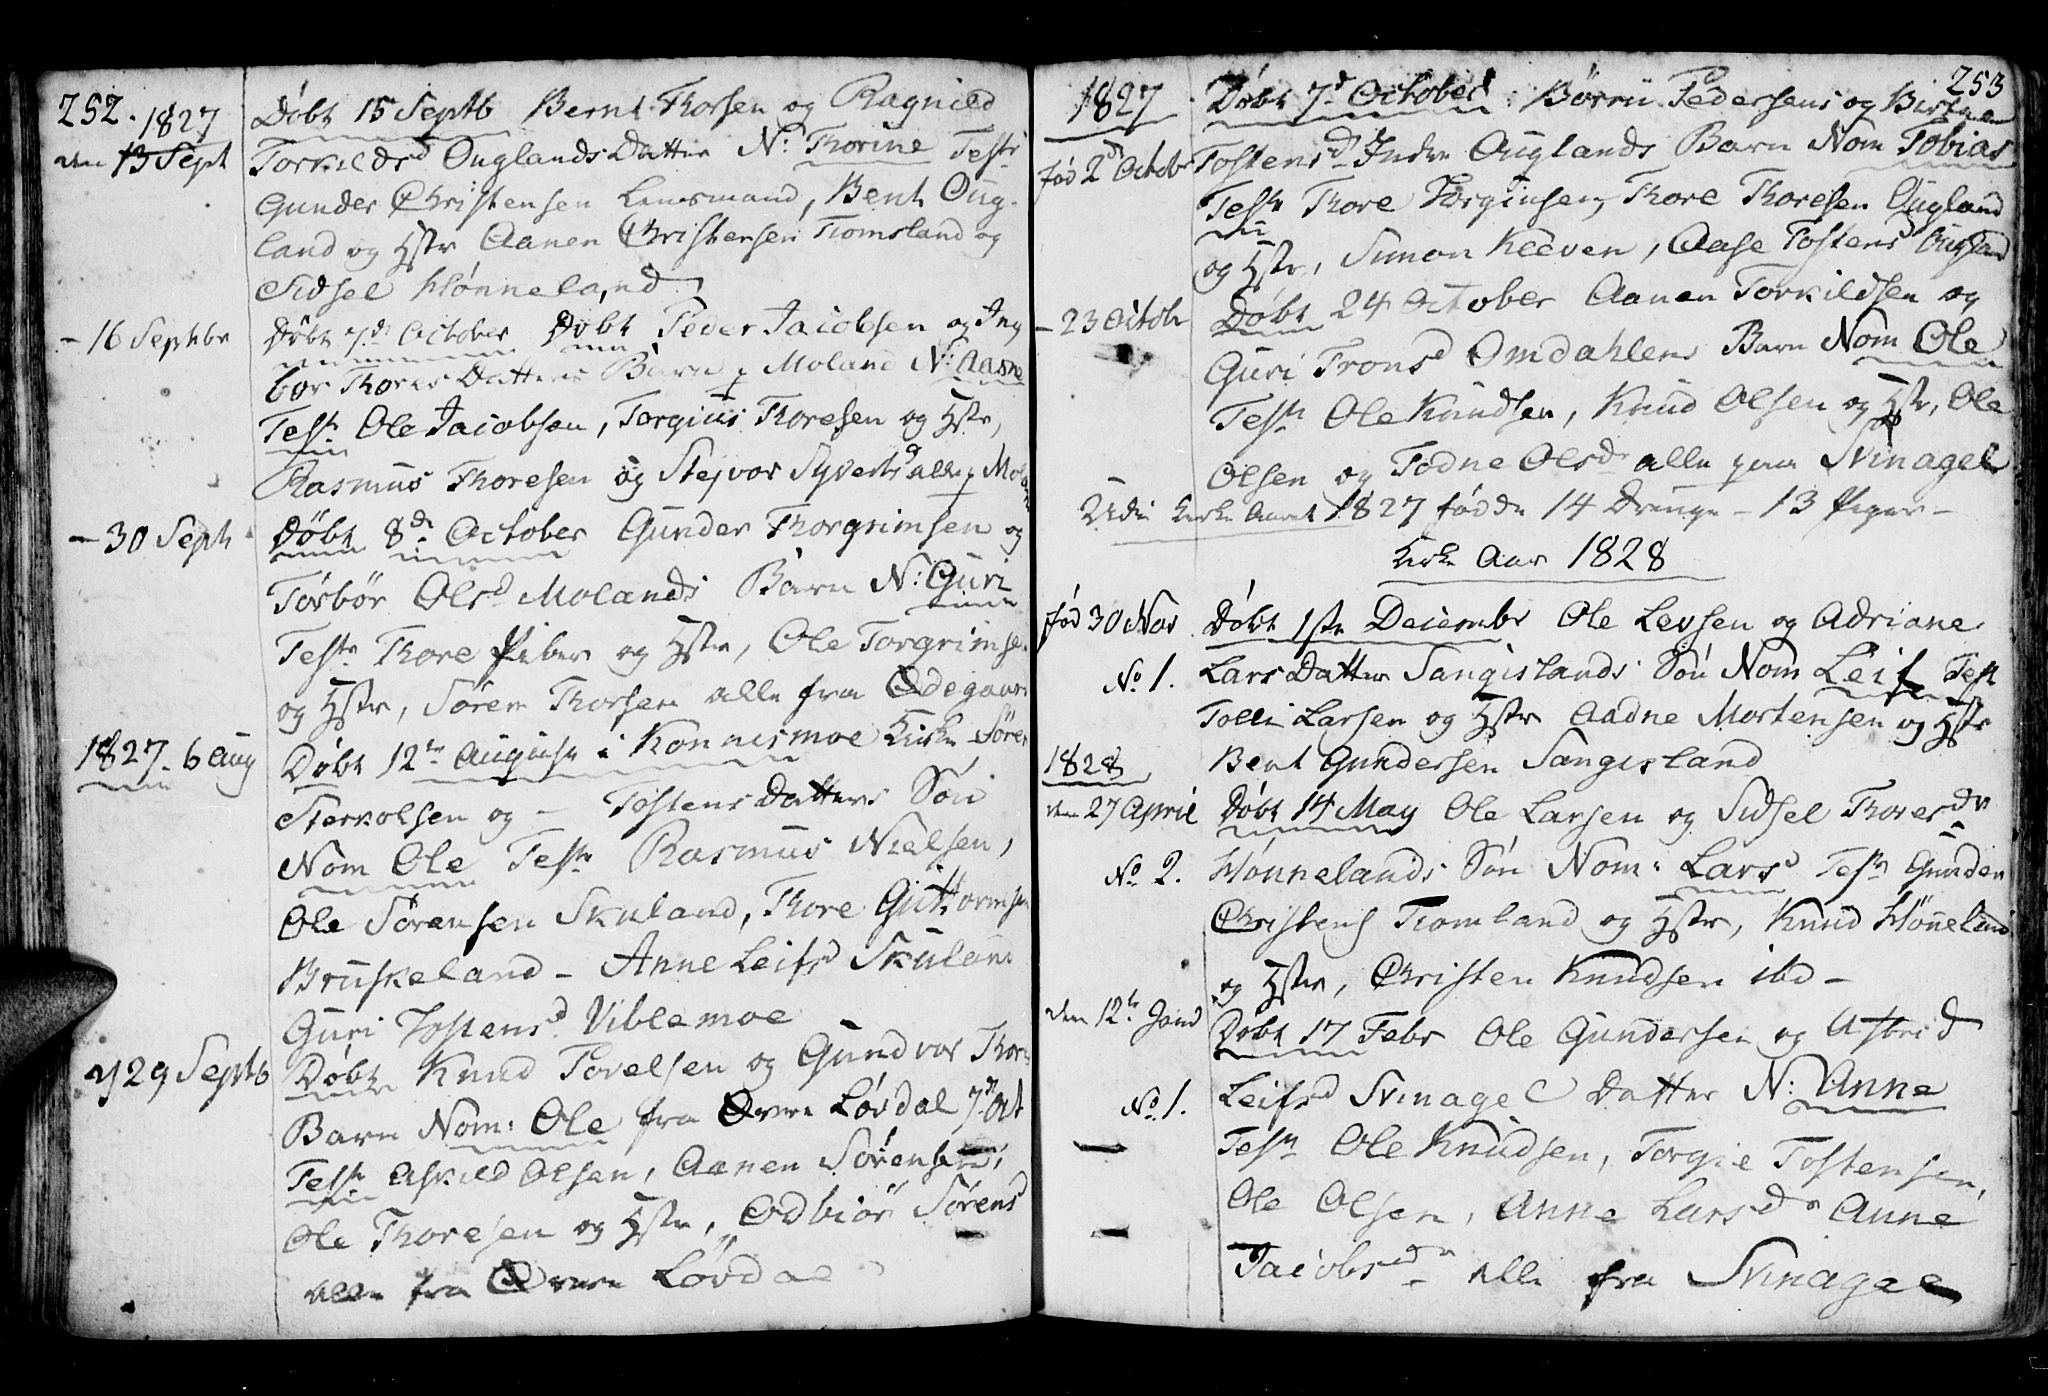 252. 1827
den 13 Sept
Døbt 15 Septb Bernt Thorsen og Ragnild
Torkildsd Ouglands Datter N: Thorine Testr
Gunder Christensen Lensmand, Bent Oug-
land og Hstr Aanen Christensen Tromsland og
Sidsel Hønneland
- 16 Septbr
Døbt 7de October Døbt Peder Jacobsen og Ing
bor Thores Datters Barn p Moland N: Aasne
Testr Ole Jacobsen, Torgius Thoresen og Hstr,
Rasmus Thoresen og Stejvor Syvertsd alle p Mol
- 30 Septr
Døbt 8de October Gunder Thorgrimsen og
Torbør Olsd Molands Barn N: Guri
Testr Thore Piber og Hstr, Ole Torgrimse
og Hstr, Søren Thorsen alle fra Ødegaard
1827. 6 Aug
Døbt 12te August i Konnesmoe Kirke Søren
Sterkolsen og - Tostens Datters Søn
Nom Ole Testr Rasmus Nielsen,
Ole Sørensen Skuland, Thore Guttormsen
Bruskeland - Anne Leifsd Skuland
Guri Tostensd Viblemoe
d 29 Septb
Døbt Knud Tovelsen og Gundvor Thors
Barn Nom: Ole fra Øvre Løvdal 7de Oct
Testr Askild Olsen, Aanen Sørensen,
Ole Thoresen og Hstr, Odbiør Sørensd
alle fra Øvre Løvdal
253
1827
fød 2de Octobr
Døbt 7d October: Børru Pedersens og Birthe
Tostensd Indre Ouglands Barn Nom Tobias
Testr Thore Torginsen, Thore Thoresen Ougland
og Hstr, Simon Kleven, Aase Tostensd Ougland
- 23 Octobr
Døbt 24 October Aanen Torkildsen og
Guri Tronsd Omdahlens Barn Nom Ole
Testr Ole Knudsen, Knud Olsen og Hstr, Ole
Olsen og Todne Olsdr alle paa Svinagel
Udi Kirke Aaret 1827 fødde 14 Drenge - 13 Piger -
Kirke Aar 1828
fød 30 Nov
No 1.
Døbt 1ste Decembr Ole Levsen og Adriane
Lars Datter Sangislands Søn Nom Leif Test
Tolli Larsen og Hstr Aadne Mortensen og Hstr
Bent Gundersen Sangisland
1828
den 27 April
No 2.
Døbt 14 May Ole Larsen og Sidsel Thoresdr
Hønnelands Søn Nom: Lars Testr Gunder
Christens Tromland og Hstr, Knud Hønneland
og Hstr, Christen Knudsen ibd -
den 12te Jand
No 1.
Døbt 17 Febr Ole Gundersen og Asbrid
Leifsd Svinagel Datter N: Anne
Testr Ole Knudsen, Torgie Tostensen,
Ole Olsen, Anne Larsdr Anne
Jacobsdr alle fra Svinagel